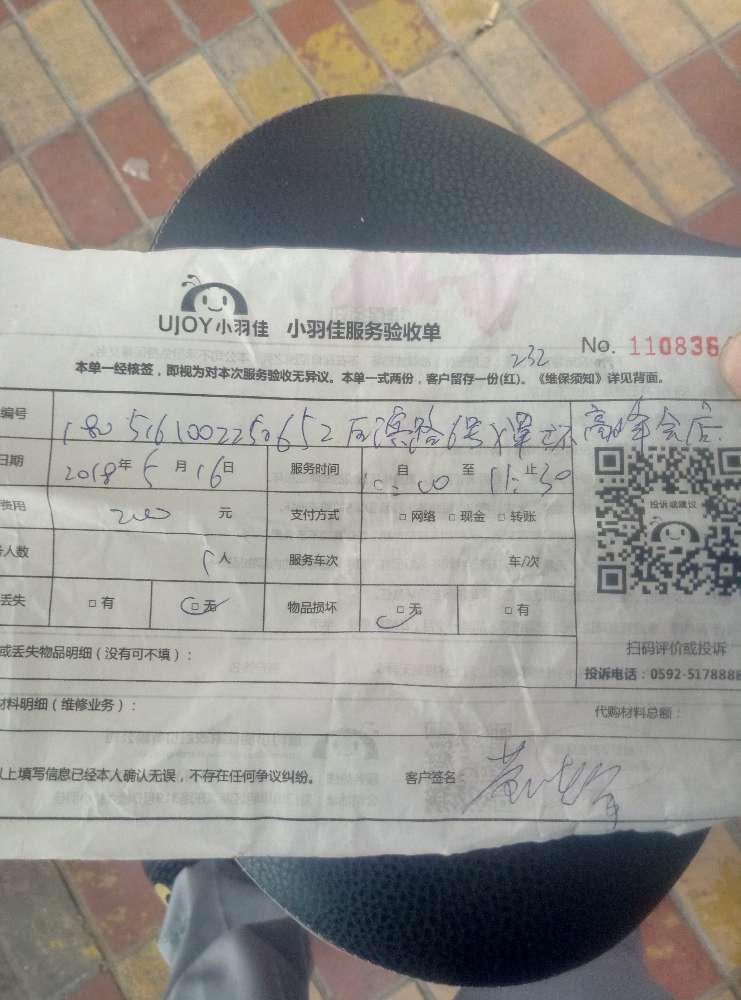 UJOY小羽佳 小羽佳服务验收单
No. 110836
232
本单一经核签，即视为对本次服务验收无异议。本单一式两份，客户留存一份(红)。《维保须知》详见背面。
编号 1805161002250652 路6号 会店
日期 2018年5月16日 服务时间 自10:00至11:30止
费用 200元 支付方式 □网络 □现金 □转账
投诉或建议
人数 1人 服务车次 车/次
丢失 □有 □无 物品损坏 □无 □有
扫码评价或投诉
或丢失物品明细（没有可不填）：
投诉电话：0592-5178888
材料明细（维修业务）： 代购材料总额：
以上填写信息已经本人确认无误，不存在任何争议纠纷。 客户签名：